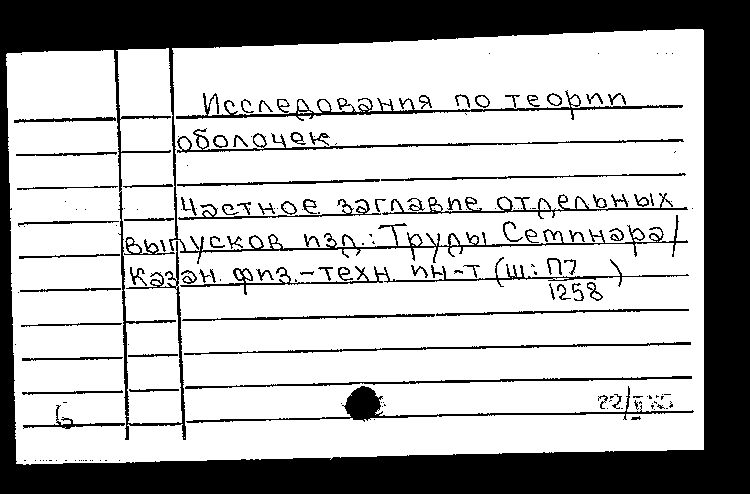 Исследования по теории
оболочек
Частное заглавие отдельных
выпусков изд.: Труды Семинара/
Казан. физ.-техн. ин-т (Ш: П7
1258)
Б